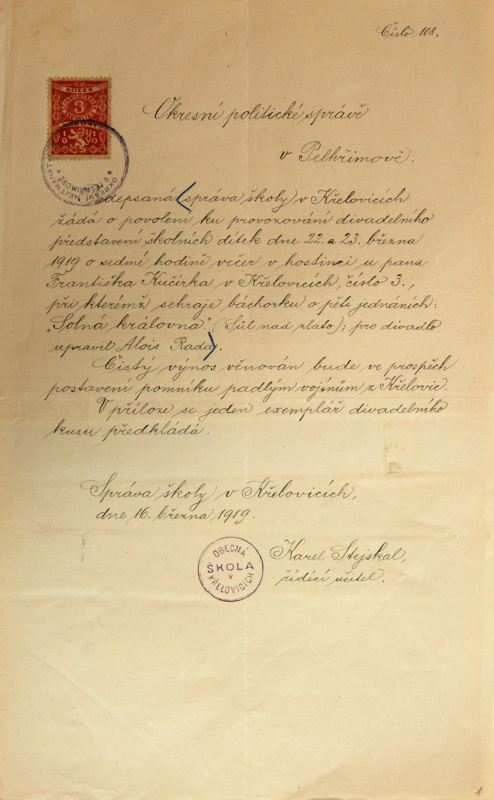 Číslo 108.
KOLEK
3
1919
OKRESNÍ HEJTMANSTVÍ
V PELHŘIMOVĚ
Okresní politické správě
v Pelhřimově.
Podepsaná (správa školy) v Křelovicích
žádá o povolení ku provozování divadelního
představení školních dítek dne 22. a 23. března
1919 o sedmé hodině večer v hostinci u pana
Františka Kučírka v Křelovicích, číslo 3.,
při kterémž sehraje báchorku o pěti jednáních:
"Solná královna." (Sůl nad zlato); pro divadlo
upravil Alois Rada).
Čistý výnos věnován bude ve prospěch
postavení pomníku padlým vojínům z Křelovic.
V příloze se jeden exemplář divadelního
kusu předkládá.
Správa školy v Křelovicích,
dne 16. března 1919.
OBECNÁ
ŠKOLA
V
KŘELOVICÍCH
Karel Stejskal,
řídící učitel.
1